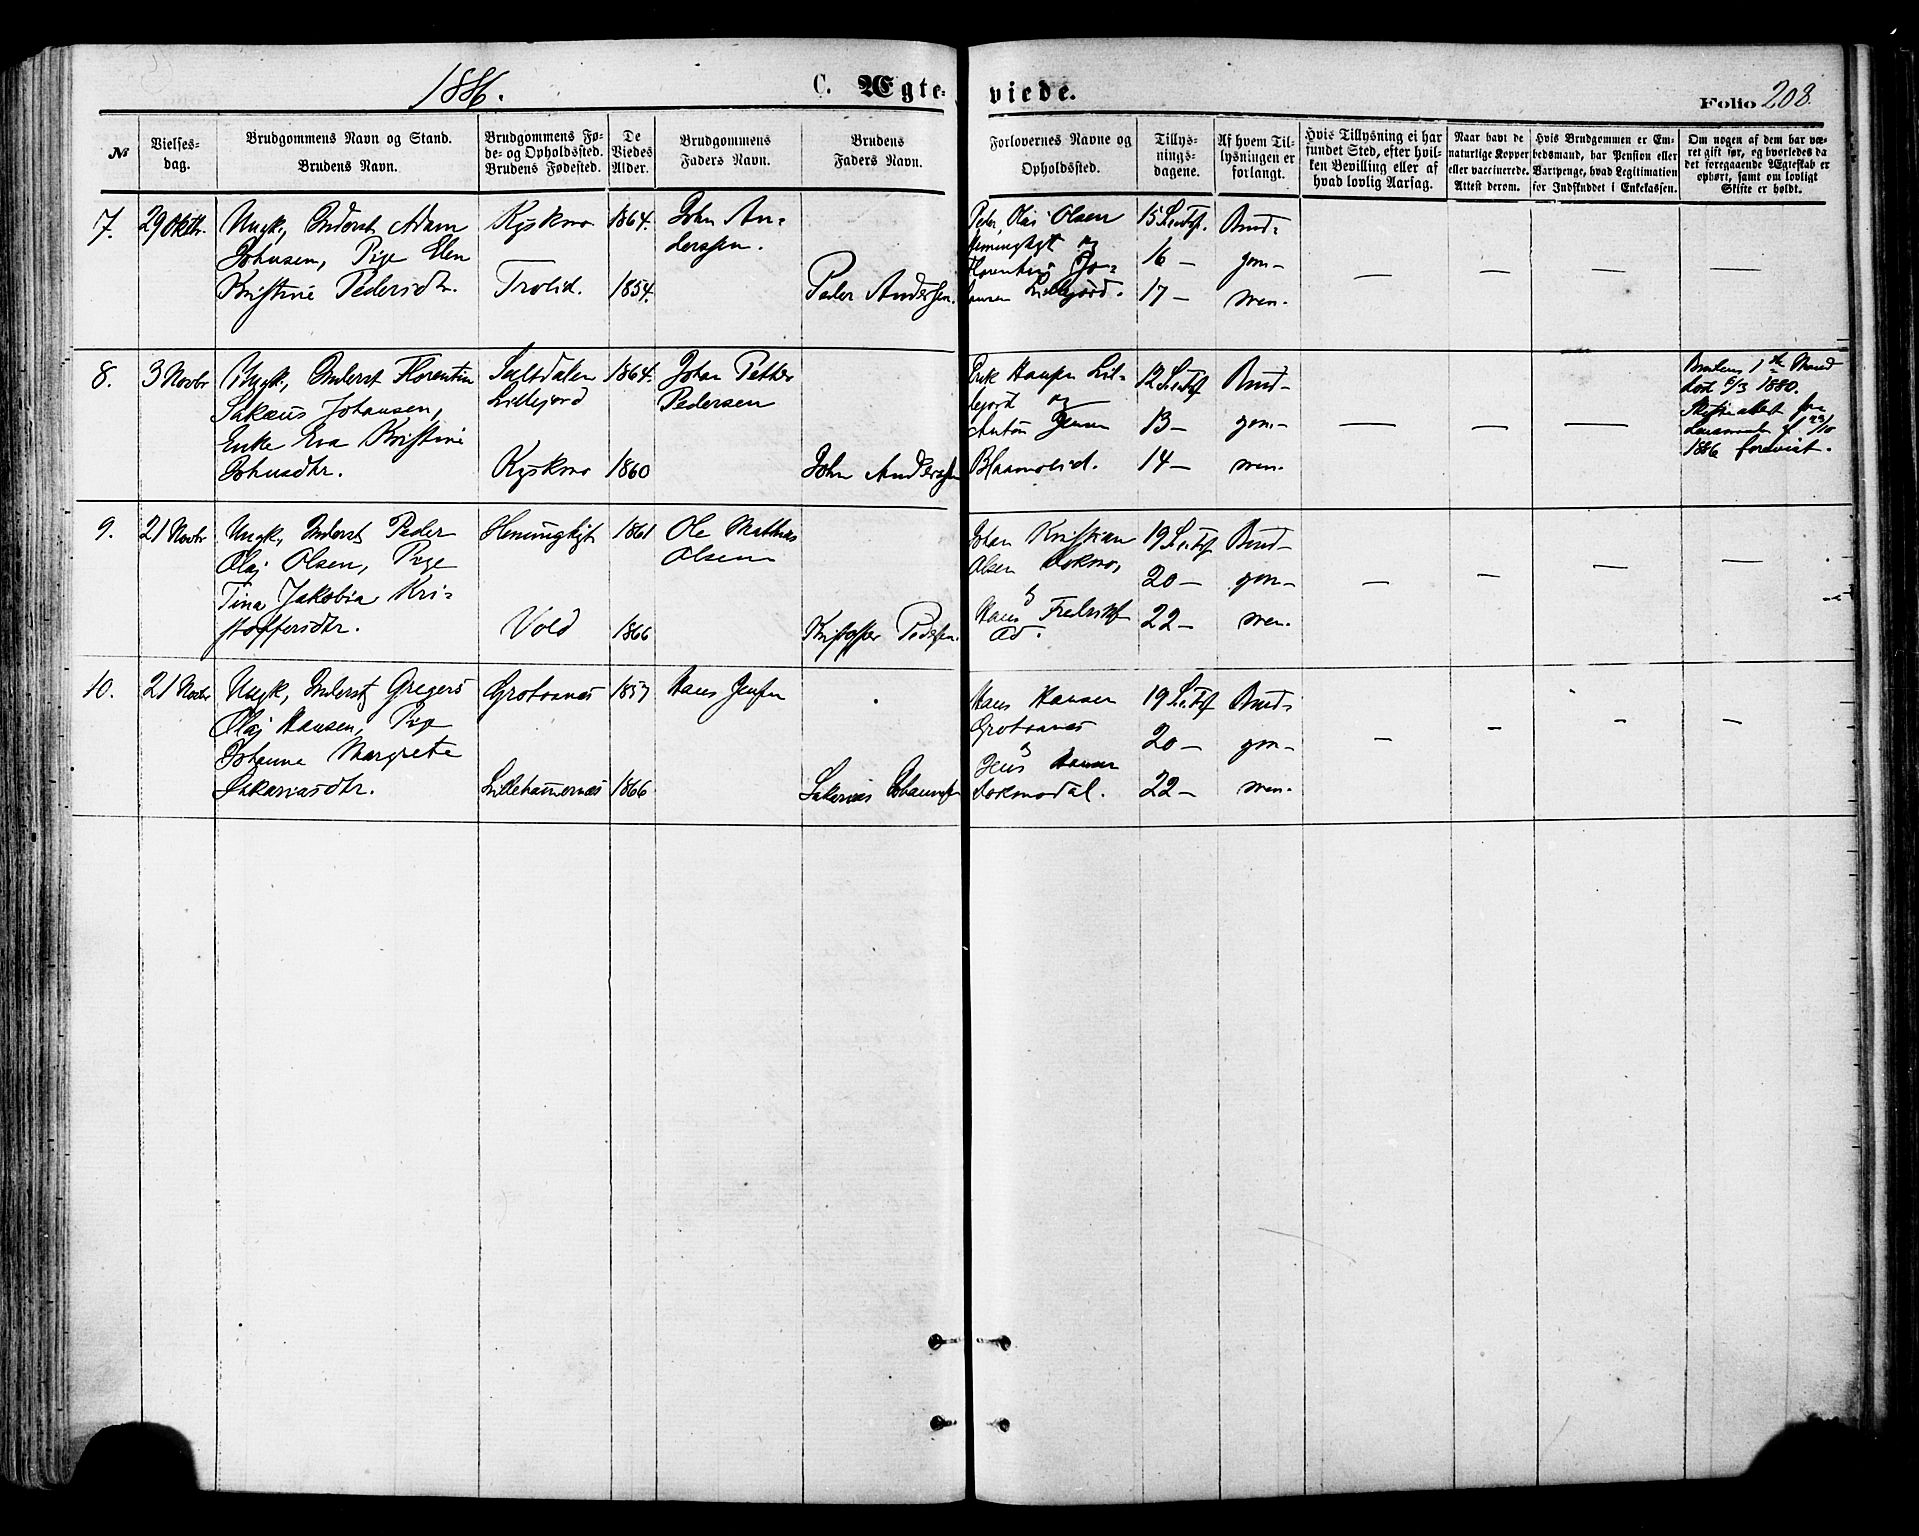 1886.
C. Ægte-
viede.
Folio 208.
№
Vielses-
dag.
Brudgommens Navn og Stand.
Brudens Navn.
Brudgommens Fø-
de- og Opholdssted.
Brudens Fødested.
De
Viedes
Alder.
Brudgommens
Faders Navn.
Brudens
Faders Navn.
Forlovernes Navne og
Opholdssted.
Tillys-
nings-
dagene.
Af hvem Til-
lysningen er
forlangt.
Hvis Tillysning ei har
fundet Sted, efter hvil-
ken Bevilling eller af
hvad lovlig Aarsag.
Naar havt de
naturlige Kopper
eller vaccinerede.
Attest derom.
Hvis Brudgommen er Em-
bedsmand, har Pension eller
Vartpenge, hvad Legitimation
for Indskuddet i Enkekassen.
Om nogen af dem har væ-
ret gift før, og hvorledes da
det foregaaende Ægteskab er
ophørt, samt om lovligt
Skifte er holdt.
7.
29 Oktbr.
Ungk, Inderst Adam
Johnsen, Pige Elen
Kristine Pedersdtr.
Kyskmo
Trolid.
1864.
1854.
John An-
derssen.
Peder Anderssen.
Peder Olai Olsen
Hemingligt og
Lillefjord.
15 S. e. Tref.
16 —
17 —
Brud-
gom-
men.
8.
3 Novbr
Ungk, Inderst Florentin
Sakæus Johansen,
Enke Eva Kristine
Johnsdtr.
Saltdalen
Lillefjord
Kyskmo
1864.
1860
Johan Petter
Pedersen
John Anderssen
Erik Hansen Lil-
lefjord og
Anton Jensen
12 S. e. Tref
13 —
14 —
Brud-
gom-
men.
Brudens 1ste Mand
død 6/3 1880.
Skifteattest fra
Lensmand f. 23/10
1886 forevist.
9.
21 Novbr
Ungk, Inderst Peder
Olai Olsen, Pige
Tina Jakobia Kri-
stoffersdtr.
Hemingligt
Vold
1861
1866
Ole Mathias
Olsen
Kristoffer Pedersen.
Johan Kristian
Olsen Dokmo,
Hans Fredriksen
19 S. e. Tref
20 —
22 —
Brud-
gom-
men.
10.
21 Novbr
Ungk, Inderst Gregers
Olaj Hansen, Pige
Johanna Margrete
Sakariasdtr.
Grotnæs
Lillehamernæs
1857
1866
Hans Jensen
Sakarias Johannsen
Hans Hansen
Grotnæs
Jens Hansen
Dokmodal.
19 S. e. Tref
20 —
22 —
Brud-
gom-
men.